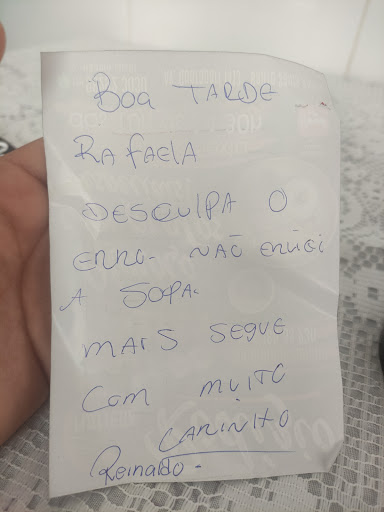 Boa TARDE
RAFAELA
DESCULPA O
ERRO. NÃO ENVIEI
A SOPA.
MAIS SEGUE
COM MUITO
CARINHO
Reinaldo.